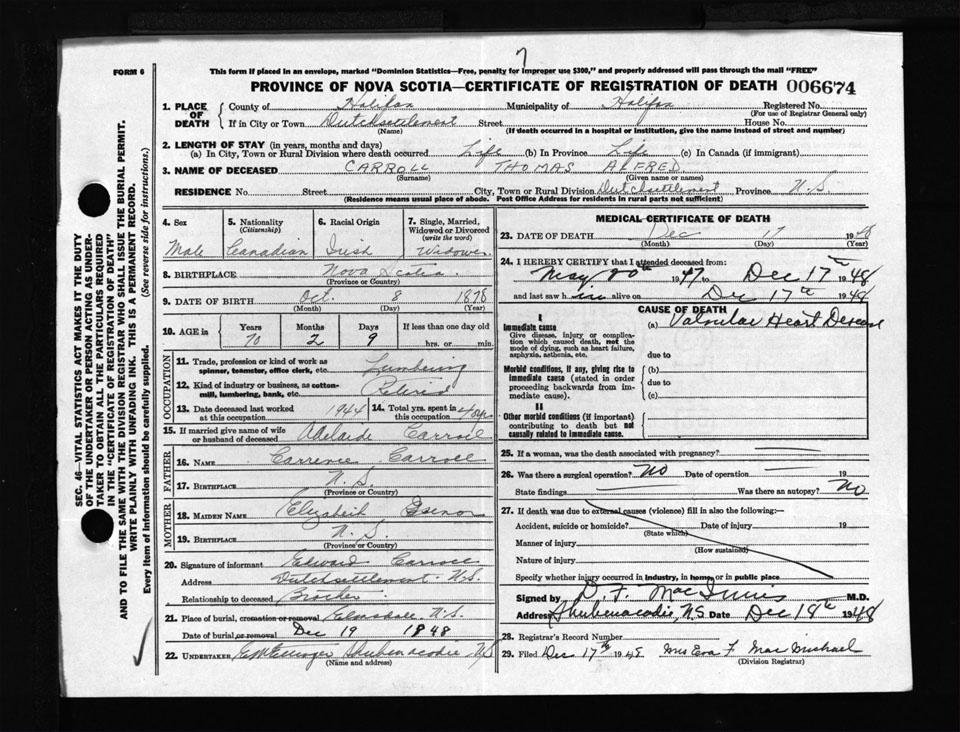 7
FORM 6
This form if placed in an envelope, marked "Dominion Statistics—Free, penalty for improper use $300," and properly addressed will pass through the mail "FREE"
PROVINCE OF NOVA SCOTIA—CERTIFICATE OF REGISTRATION OF DEATH 006674
1. PLACE OF DEATH
County of Halifax Municipality of Halifax Registered No.
(For use of Registrar General only)
If in City or Town Dutchsettlement Street House No.
(Name) (If death occurred in a hospital or institution, give the name instead of street and number)
2. LENGTH OF STAY (in years, months and days)
(a) In City, Town or Rural Division where death occurred Life (b) In Province Life (c) In Canada (if immigrant)
3. NAME OF DECEASED CARROLL THOMAS ALFRED
(Surname) (Given name or names)
RESIDENCE No. Street City, Town or Rural Division Dutchsettlement Province N.S.
(Residence means usual place of abode. Post Office Address for residents in rural parts not sufficient)
4. Sex
Male
5. Nationality
(Citizenship)
Canadian
6. Racial Origin
Irish
7. Single, Married,
Widowed or Divorced
(write the word)
Widower
8. BIRTHPLACE Nova Scotia
(Province or Country)
9. DATE OF BIRTH Oct. 8 1878
(Month) (Day) (Year)
10. AGE in
Years Months Days If less than one day old
70 2 9 hrs. or min.
OCCUPATION
11. Trade, profession or kind of work as
spinner, teamster, office clerk, etc. Lumbering
12. Kind of industry or business, as cotton-
mill, lumbering, bank, etc. Retired
13. Date deceased last worked
at this occupation 1944
14. Total yrs. spent in
this occupation
15. If married give name of wife
or husband of deceased Adelaide Carroll
FATHER
16. NAME Carrence Carroll
17. BIRTHPLACE N.S.
(Province or Country)
MOTHER
18. MAIDEN NAME Elizabeth
19. BIRTHPLACE N.S.
(Province or Country)
20. Signature of informant Edward Carroll
Address Dutchsettlement N.S.
Relationship to deceased Brother
21. Place of burial, cremation or removal Elmsdale, N.S.
Date of burial or removal Dec 19 1848
22. UNDERTAKER Shubenacadie N.S
(Name and address)
MEDICAL CERTIFICATE OF DEATH
23. DATE OF DEATH Dec 17 1948
(Month) (Day) (Year)
24. I HEREBY CERTIFY that I attended deceased from:
May 20th 1947 to Dec 17th 1948
and last saw h im alive on Dec 17th 1948
CAUSE OF DEATH
I
Immediate cause
Give disease, injury or complication which caused death, not the mode of dying, such as heart failure, asphyxia, asthenia, etc.
(a) Valvular Heart Disease
due to
Morbid conditions, if any, giving rise to immediate cause (stated in order proceeding backwards from immediate cause).
(b)
due to
(c)
II
Other morbid conditions (if important) contributing to death but not causally related to immediate cause.
25. If a woman, was the death associated with pregnancy?
26. Was there a surgical operation? No Date of operation 19
State findings Was there an autopsy? No
27. If death was due to external causes (violence) fill in also the following:—
Accident, suicide or homicide? Date of injury 19
(State which)
Manner of injury
(How sustained)
Nature of injury
Specify whether injury occurred in industry, in home, or in public place
Signed by D. F. MacInnis M.D.
Address Shubenacadie, N.S. Date Dec 19th 1948
28. Registrar's Record Number
29. Filed Dec 17th 1948 Mrs Eva F MacMichael
(Division Registrar)
SEC. 46—VITAL STATISTICS ACT MAKES IT THE DUTY
OF THE UNDERTAKER OR PERSON ACTING AS UNDER-
TAKER TO OBTAIN ALL THE PARTICULARS REQUIRED
IN THE "CERTIFICATE OF REGISTRATION OF DEATH"
AND TO FILE THE SAME WITH THE DIVISION REGISTRAR WHO SHALL ISSUE THE BURIAL PERMIT.
WRITE PLAINLY WITH UNFADING INK. THIS IS A PERMANENT RECORD.
Every item of information should be carefully supplied. (See reverse side for instructions.)